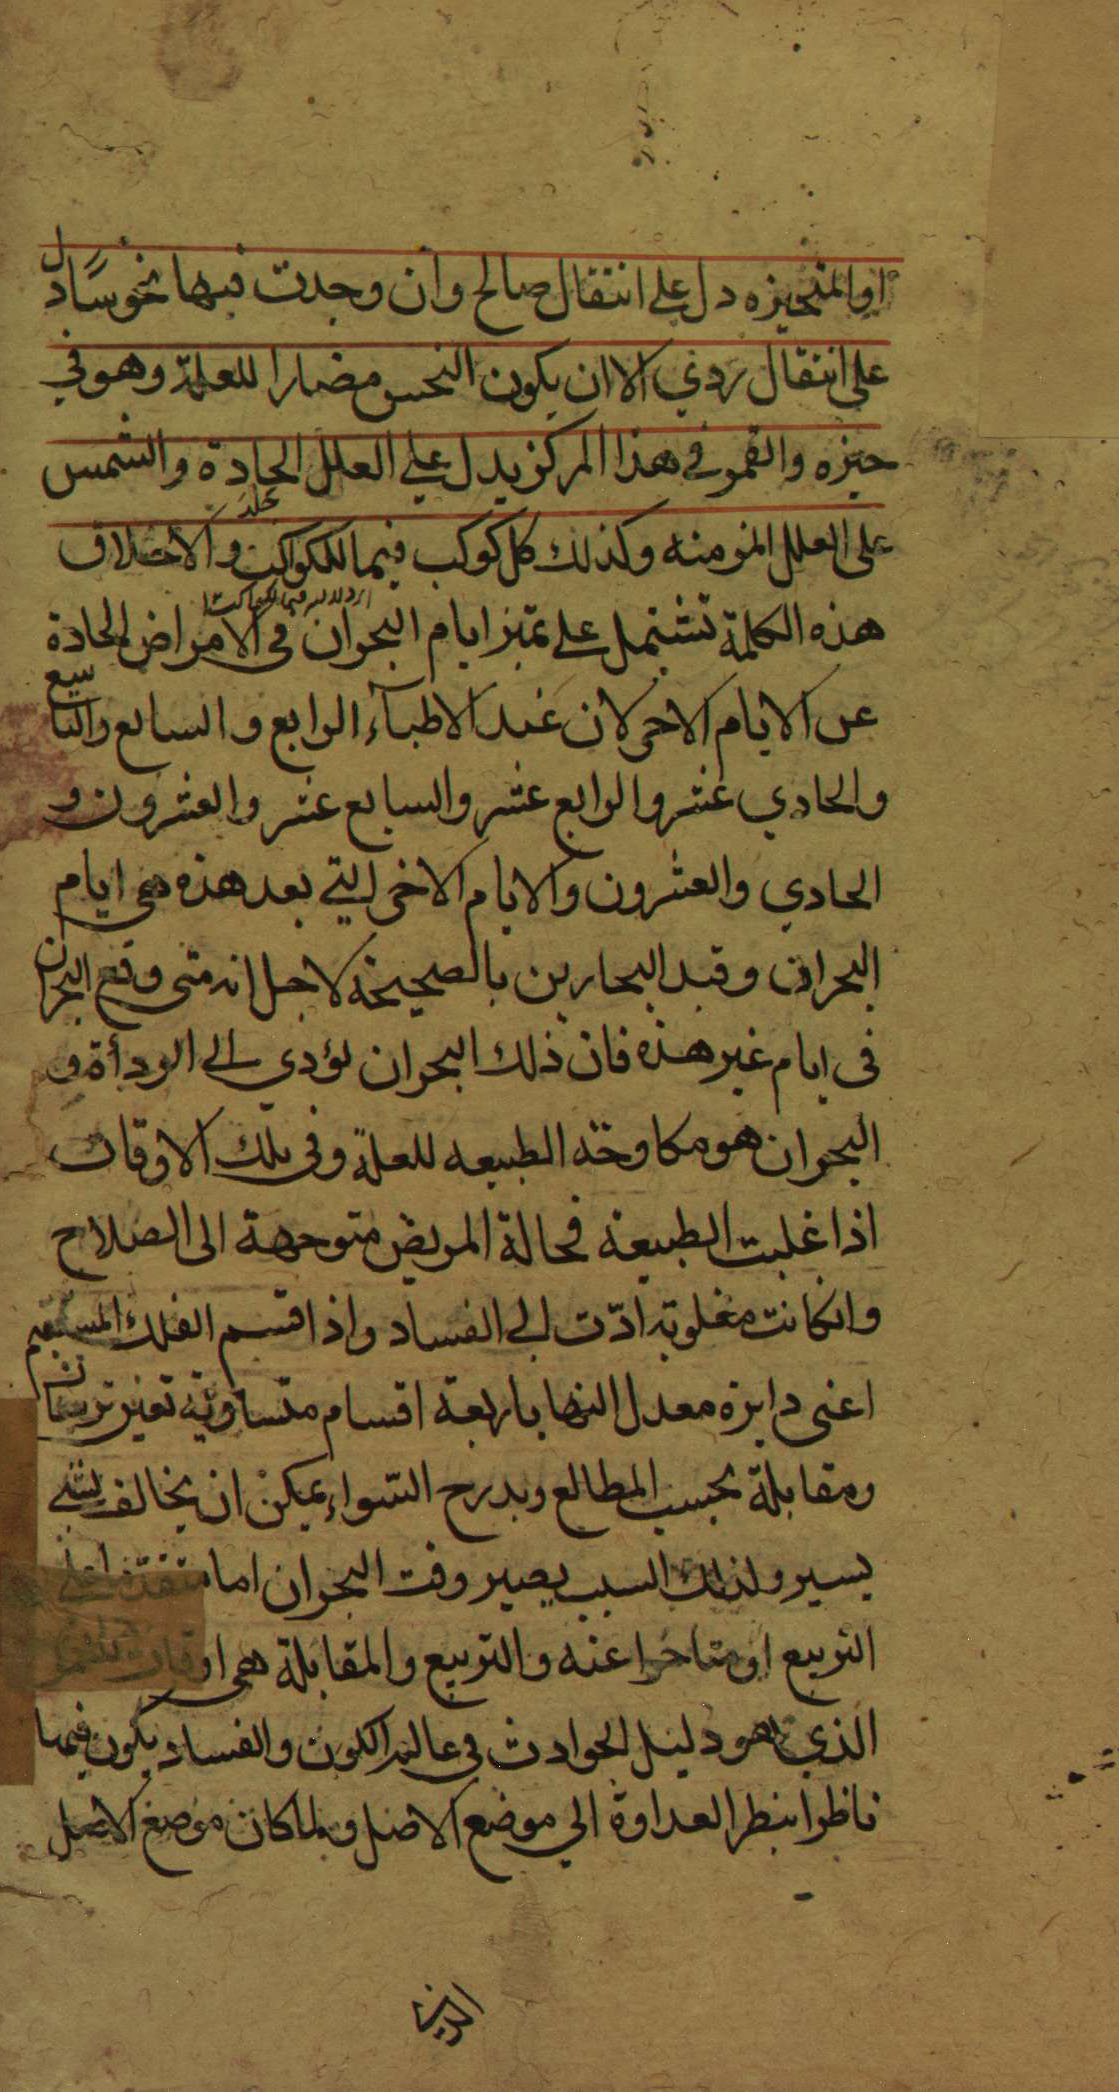 او المتحيزه دل على انتقال صالح وان وجدت فيها نحوسا دل
على انتقال ردي الا ان يكون النحس مضارا للعلة وهو في
حيزه والقمر في هذا المركز يدل على العلل الحادة والشمس
على العلل المزمنه وكذلك كل كوكب فيما للكواكب والاخلاق
هذه الكلمة تشتمل على تميز ايام البحران في الامراض الحادة
عن الايام الاخر لان عند الاطبآء الرابع والسابع والتاسع
والحادي عشر والرابع عشر والسابع عشر والعشرون و
الحادي والعشرون والايام الاخر التي بعد هذه هي ايام
البحران وقيد البحارين بالصحيحة لاجل انه متى وقع البحران
في ايام غير هذه فان ذلك البحران يؤدي الى الردأة و
البحران هو مكاوحة الطبيعه للعلة وفي تلك الاوقات
اذا غلبت الطبيعة فحالة المريض متوجهة الى الصلاح
وان كانت مغلوبة ادّت الى الفساد واذا قسم الفلك المستقيم
اعني دايرة معدل النهار باربعة اقسام متساوية تعين تربيعان
ومقابلة بحسب المطالع وبدرج السواء يمكن ان يخالف بشي
يسير ولذلك السبب يصير وقت البحران اما متقدما على
التربيع او متاخرا عنه والتربيع والمقابلة هي اوقات للقمر
الذي هو دليل الحوادث في عالم الكون والفساد يكون فيها
ناظرا بنظر العداوة الى موضع الاصل ولما كان موضع الاصل